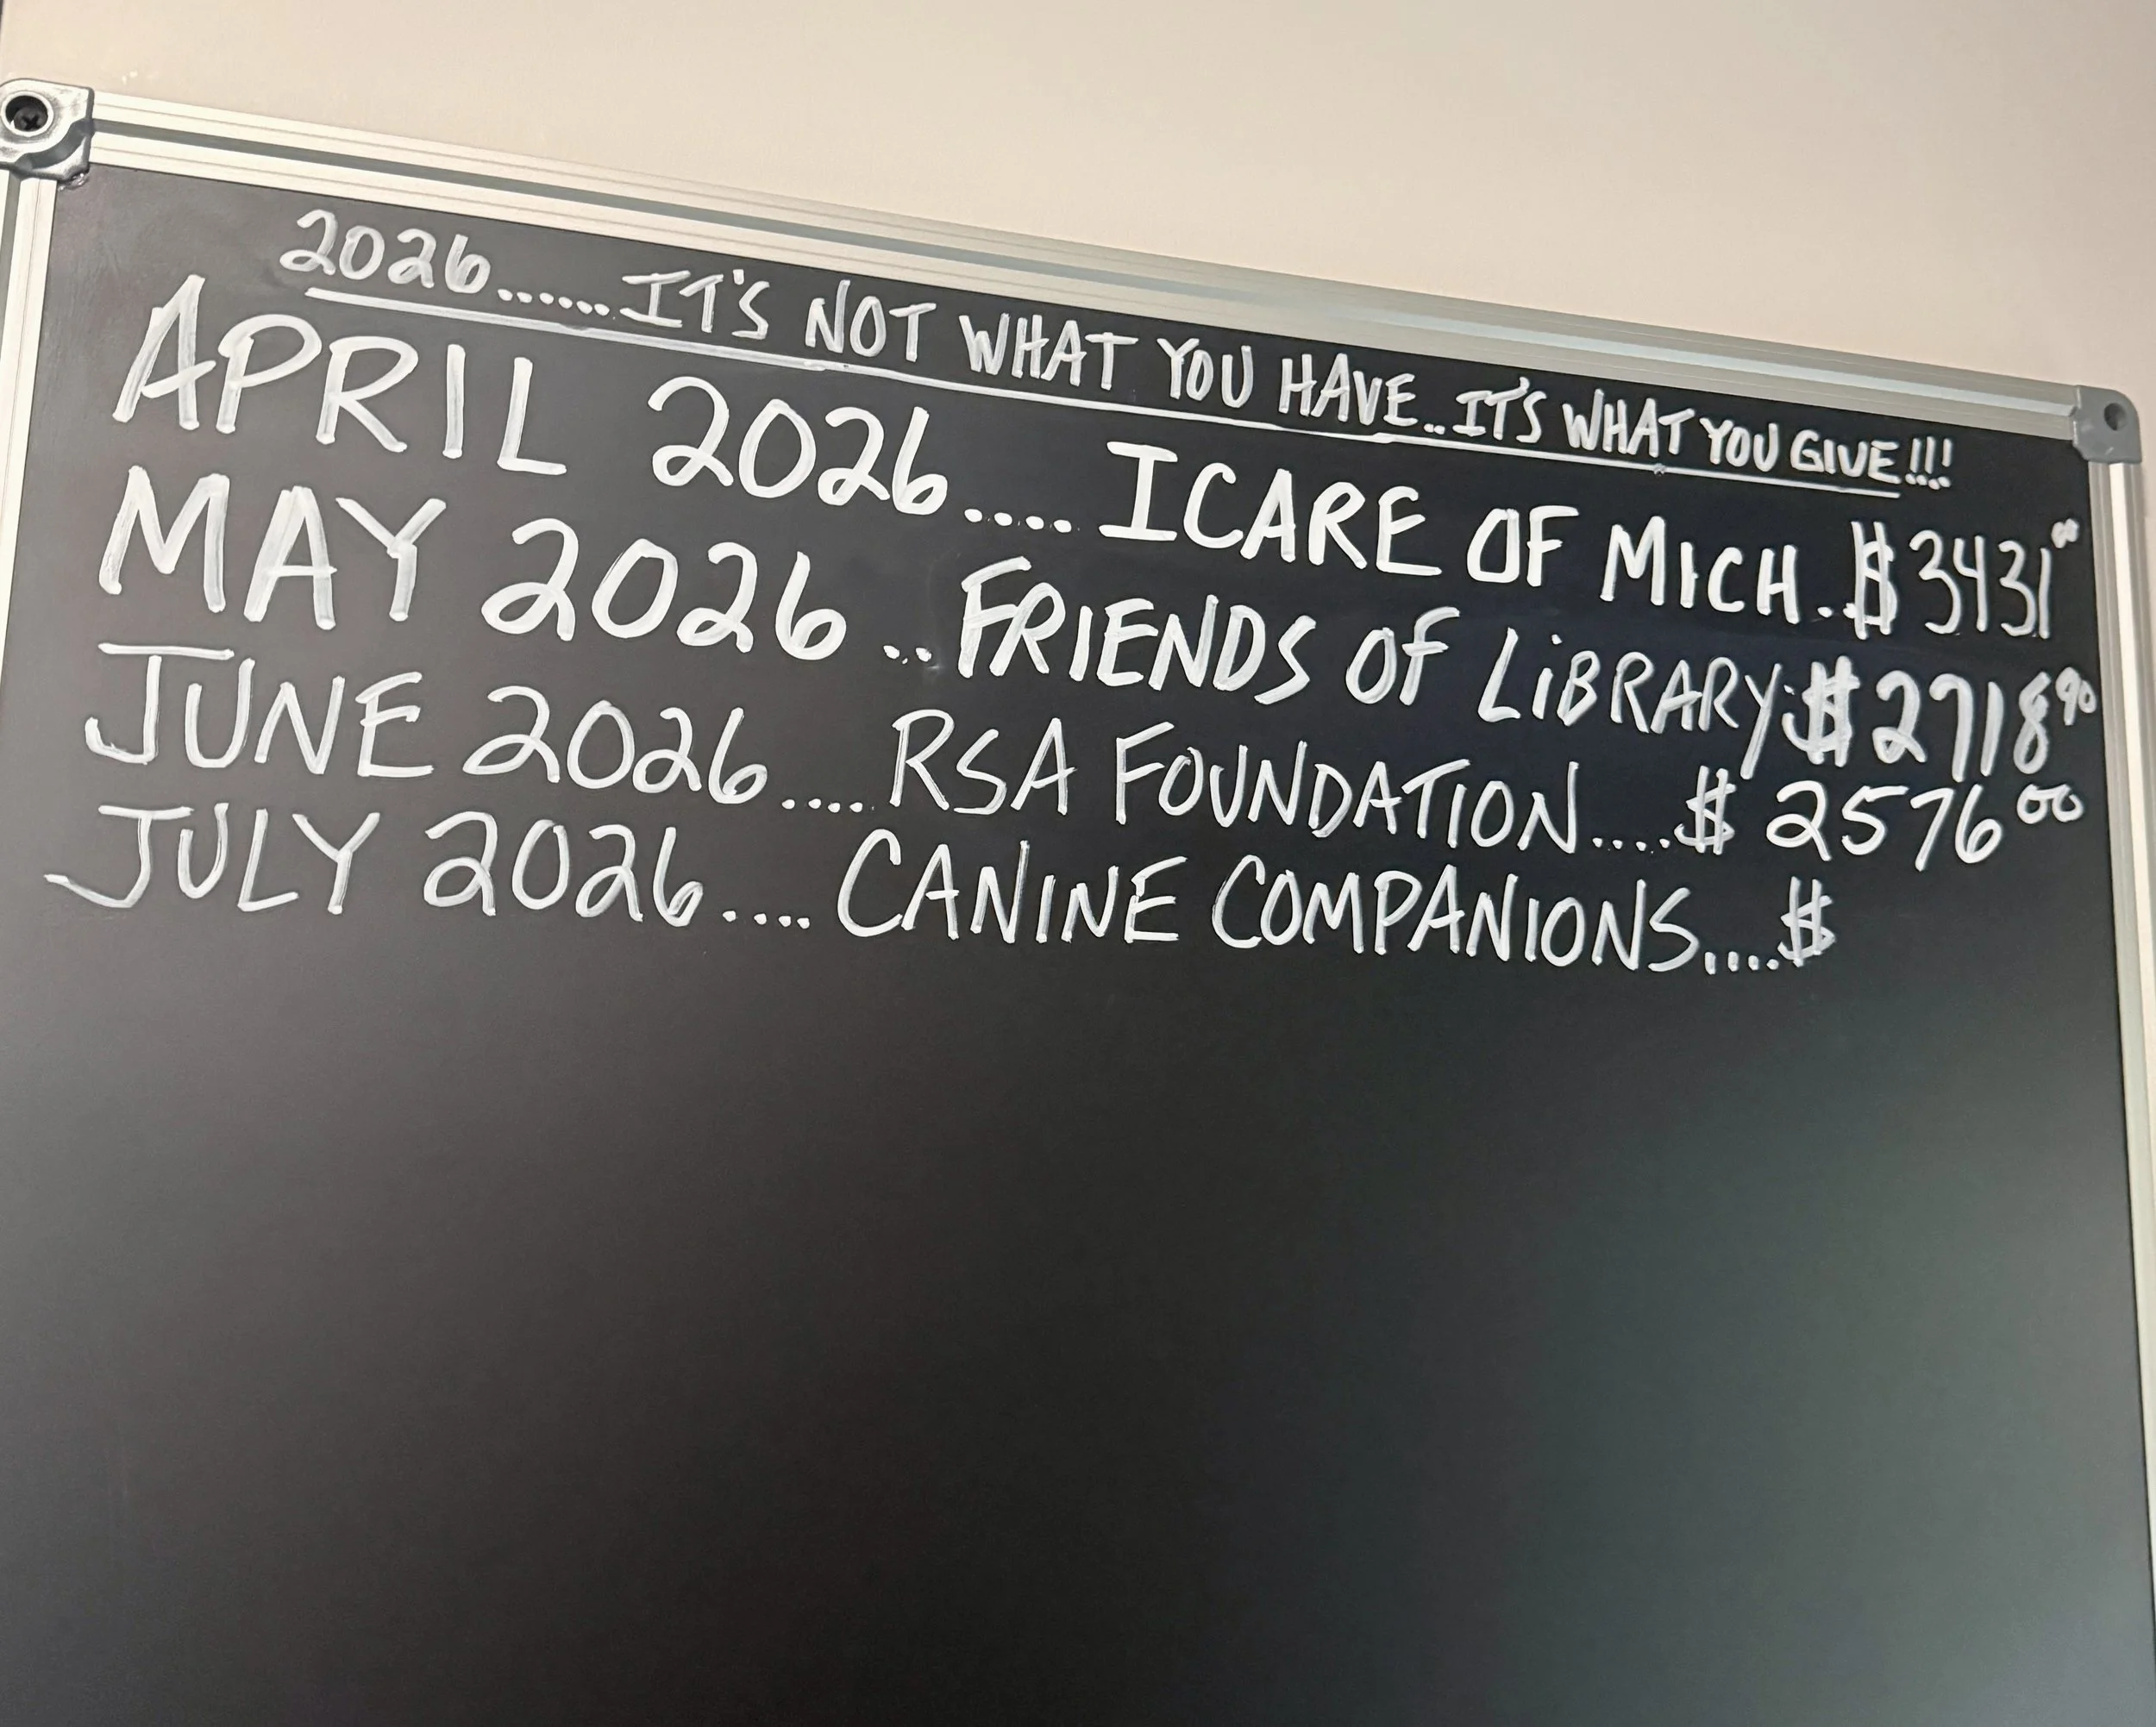 2026......IT'S NOT WHAT YOU HAVE..IT'S WHAT YOU GIVE!!!
APRIL 2026.... ICARE OF MICH. $3431⁰⁰
MAY 2026...FRIENDS OF LiBRARY.$2718⁹⁰
JUNE 2026.... RSA FOUNDATION....$ 2576⁰⁰
JULY 2026.... CANINE COMPANIONS....$